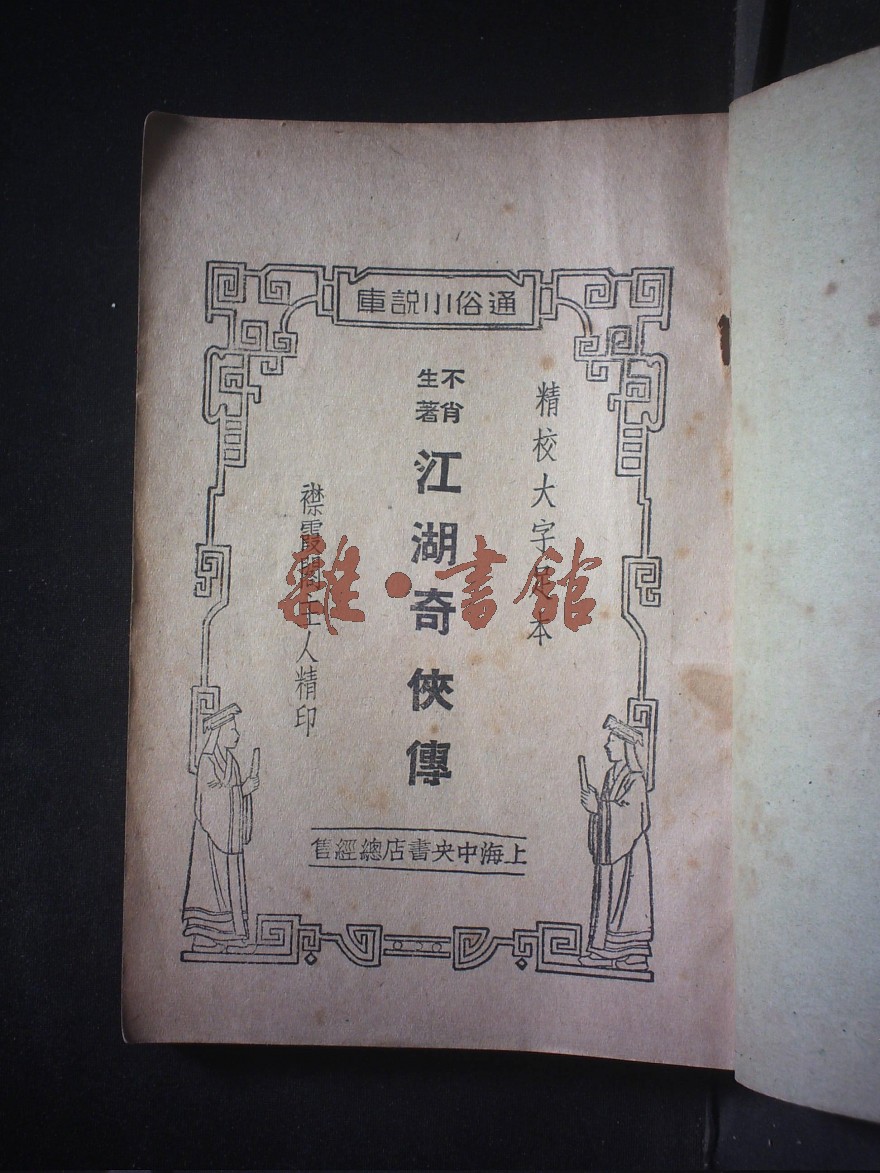 通俗小説庫
精校大字足本
不肖生著
江湖奇俠傳
襟霞閣主人精印
上海中央書店總經售
雜·書館